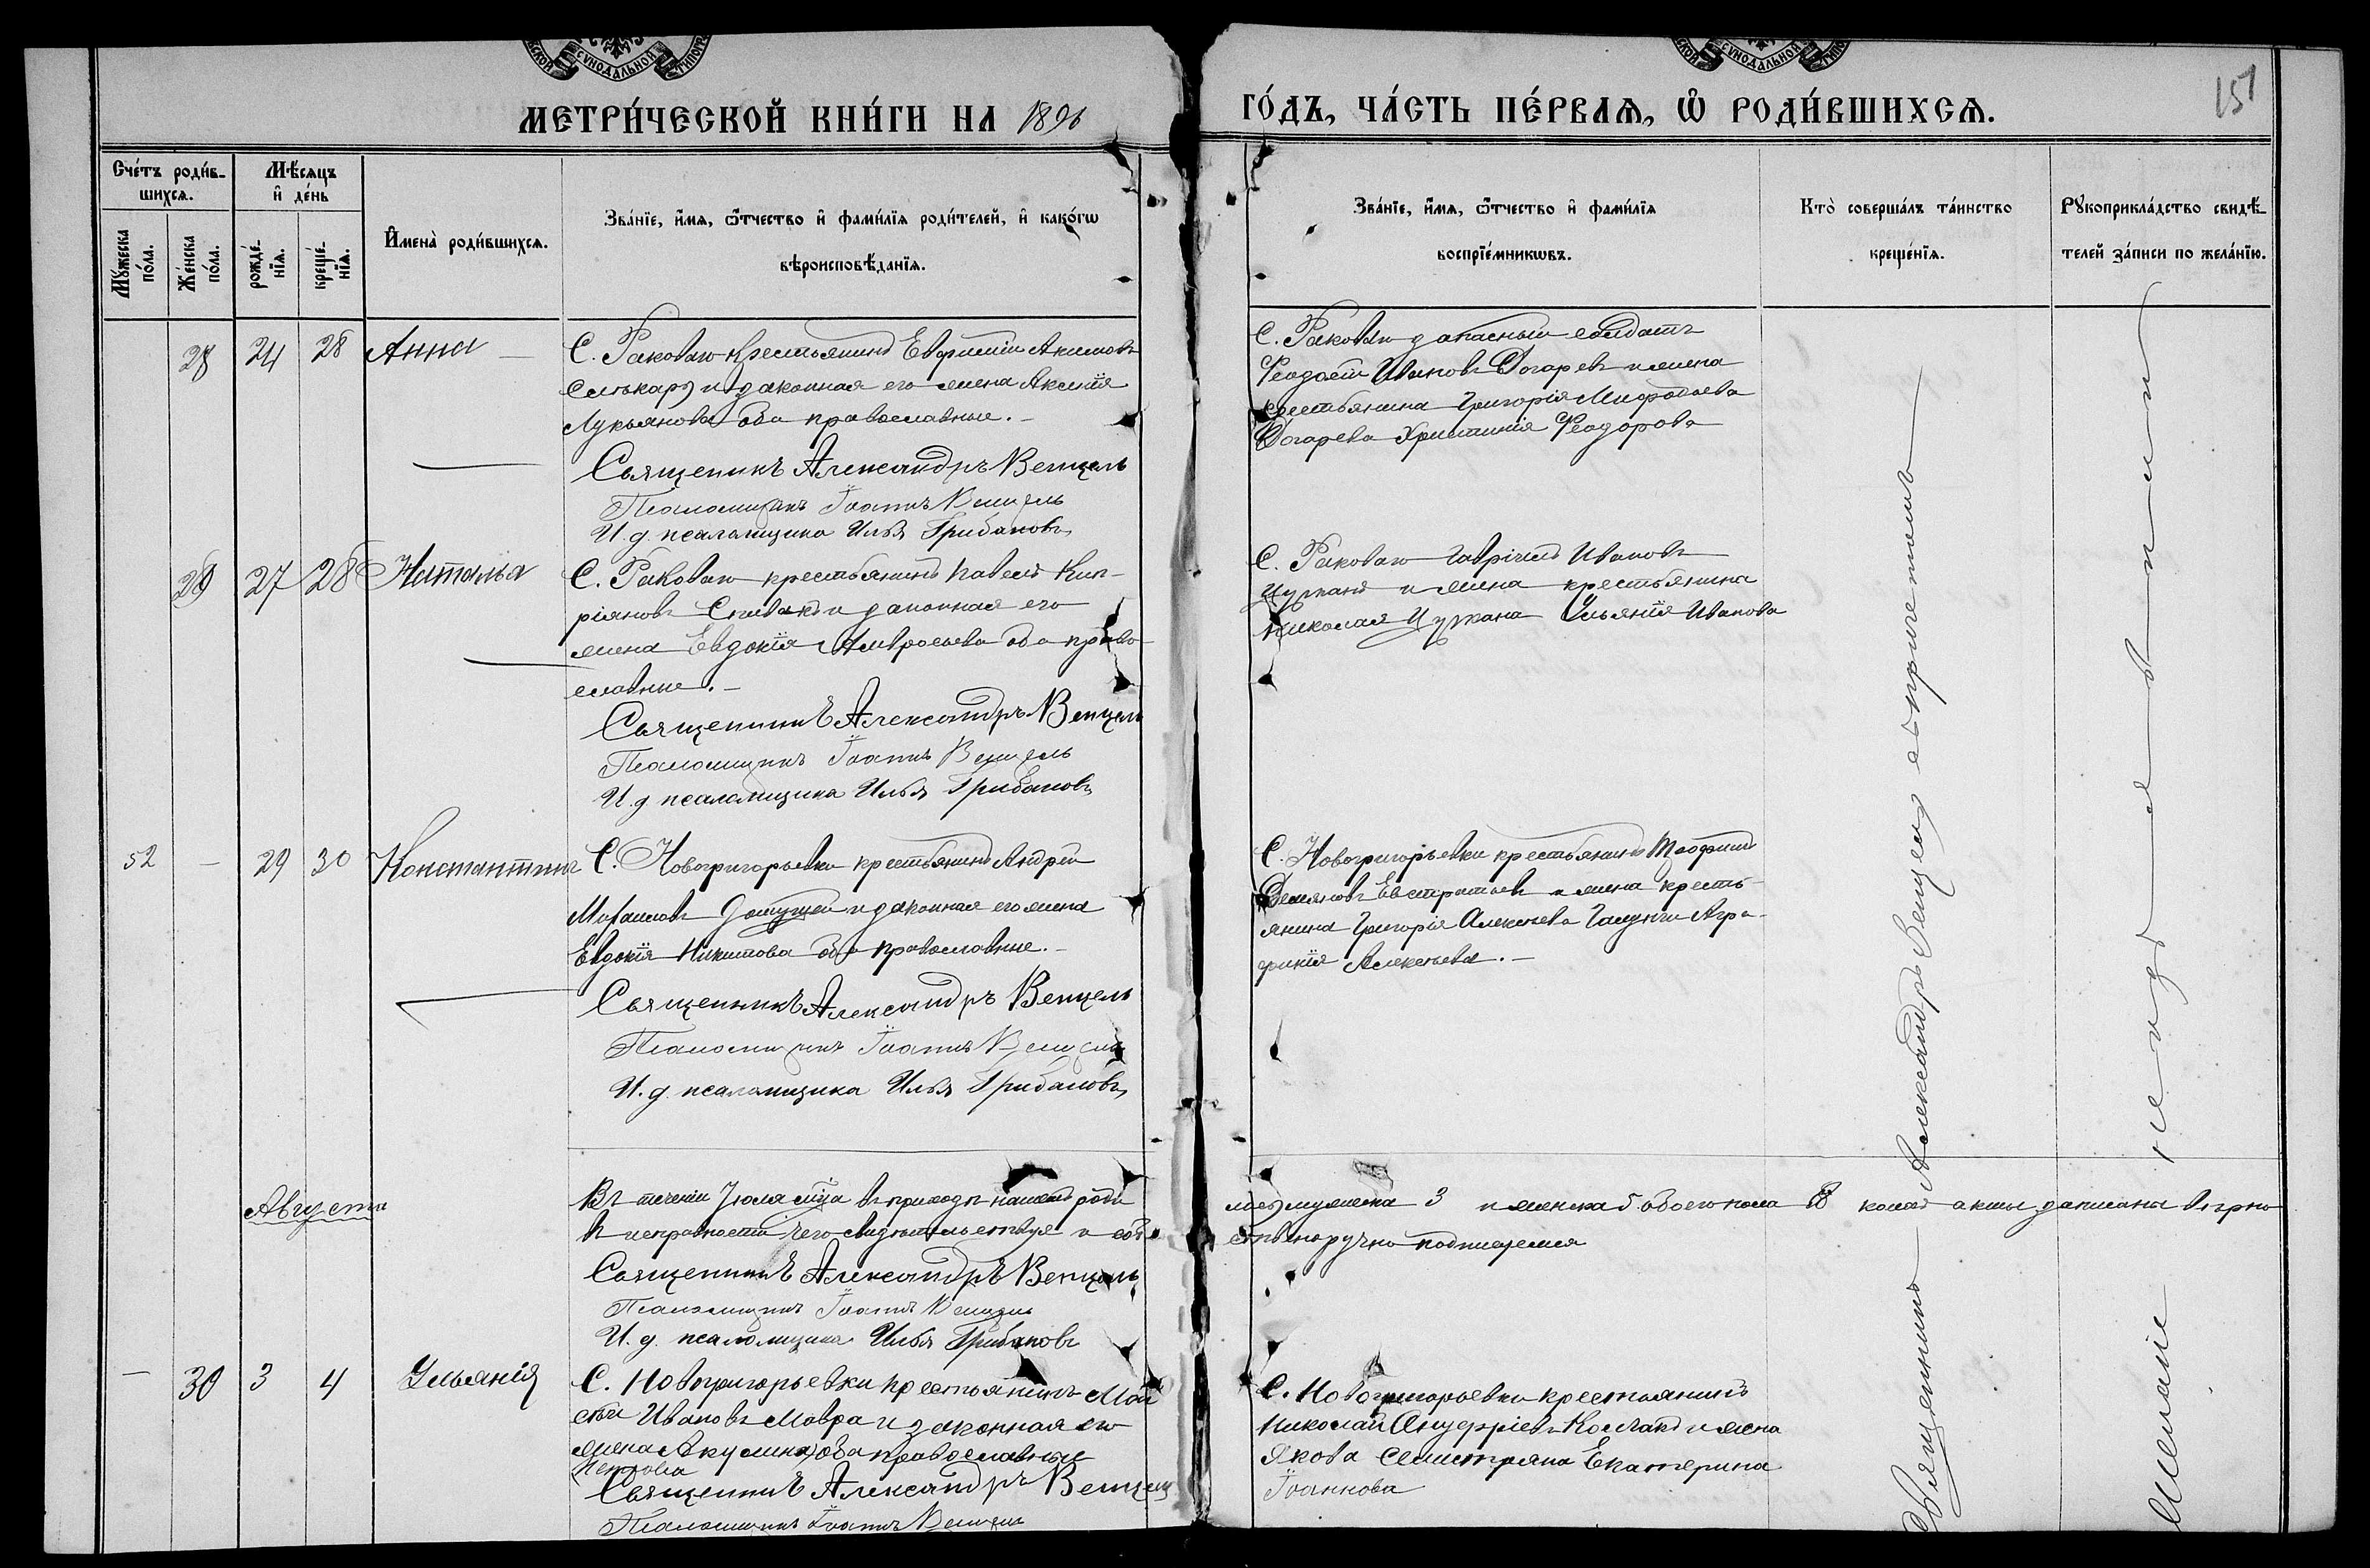 СКОЙ СѴНОДАЛЬНОЙ ТИПОГР
СКОЙ СѴНОДАЛЬНОЙ ТИПОГР
МЕТРИ́ЧЕСКОЙ КНИ́ГИ НА 1896
ГО́ДЪ, ЧА́СТЬ ПЕ́РВАѦ, Ѡ҆ РОДИ́ВШИХСѦ.
151
Сче́тъ роди́в-
шихсѧ.
Мꙋ́жеска по́ла.
Же́нска по́ла.
Мѣ́сѧцъ
и҆ де́нь
рожде́-
нїѧ.
креще́-
нїѧ.
И҆мена̀ роди́вшихсѧ.
Зва́нїе, и҆́мѧ, ѻ҆́тчество и҆ фами́лїѧ роди́телей, и҆ како́гѡ
вѣроисповѣ́данїѧ.
Зва́нїе, и҆́мѧ, ѻ҆́тчество и҆ фами́лїѧ
воспрїе́мникѡвъ.
Кто̀ соверша́лъ та́инство
креще́нїѧ.
Рꙋкоприкла́дство свидѣ́-
телей за́писи по жела́нїю.
28 24 28 Анна
С. Раковаго крестьянинъ Евфимій Акимовъ
и законная его жена Аксинія
Лукьянова оба православные.
Священикъ Александръ Венцель
Псаломщикъ Іоаннъ Венцель
И. д. псаломщика Илья Грибановъ
С. Раковаго запасный солдатъ
Феодосій Ивановъ Богаревъ и жена
крестьянина Григорія Мифодіева
Богарева Христинія Феодорова
29 27 28 Наталья
С. Раковаго крестьянинъ Павелъ Кип-
ріяновъ Спивакъ и законная его
жена Евдокія Амвросьева оба право-
славные.
Священникъ Александръ Венцель
Псаломщикъ Іоаннъ Венцель
И. д. псаломщика Илья Грибановъ
С. Раковаго Гавріилъ Ивановъ
Цурканъ и жена крестьянина
Николая Цуркана Ульянія Иванова
52 — 29 30 Константинъ
С. Новогригорьевки крестьянинъ Андрей
Михаиловъ и законная его жена
Евдокія Никитова оба православные.
Священникъ Александръ Венцель
Псаломщикъ Іоаннъ Венцель
И. д. псаломщика Илья Грибановъ
С. Новогригорьевки крестьянинъ
Демяновъ Евстратьевъ и жена кресть-
янина Григорія Алексѣева Агра-
финія Алексѣева.
Августъ
Въ теченіи Іюля мѣца въ приходѣ нашемъ роди
лось мужеска 3 и женска 5 обоего пола 8 коихъ акты записаны вѣрно
въ исправности чего свидѣтельствуя и соб-
ственоручно подписуемся
Священникъ Александръ Венцель
Псаломщикъ Іоаннъ Венцель
И. д. псаломщика Илья Грибановъ
— 30 3 4 Ульянія
С. Новогригорьевки крестьянинъ Мои
сѣй Ивановъ Мавра и законная его
жена Акулина оба православные
Петрова
Священникъ Александръ Венцель
Псаломщикъ Іоаннъ Венцель
С. Новогригорьевки крестьянинъ
Николай Ануфріевъ Колчакъ и жена
Якова Селистряна Екатерина
Іоаннова
Священникъ Александръ Венцель съ причетомъ
Желаніе не изъявили